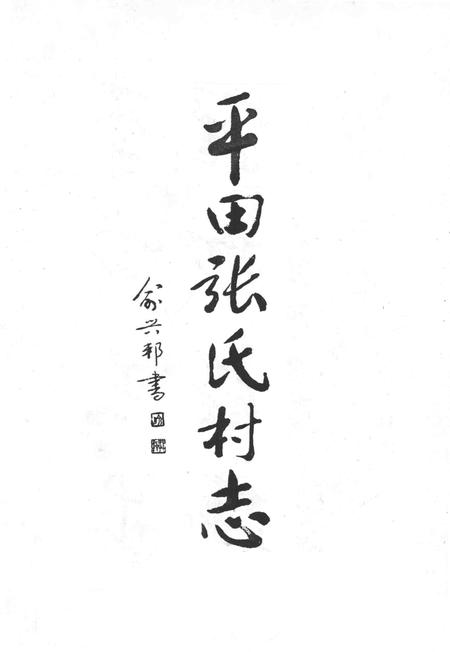 平田张氏村志
俞兴邦書